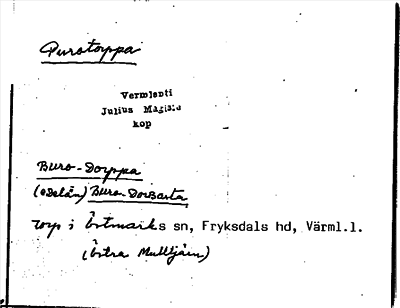 Purotorppa
Vermlanti
Julius Mägiste
kop
Buro-Dorppa
(odelän) Buro-Dorbasta
torp i Östmarks sn, Fryksdals hd, Värml.l.
(Östra Mulltjärn)